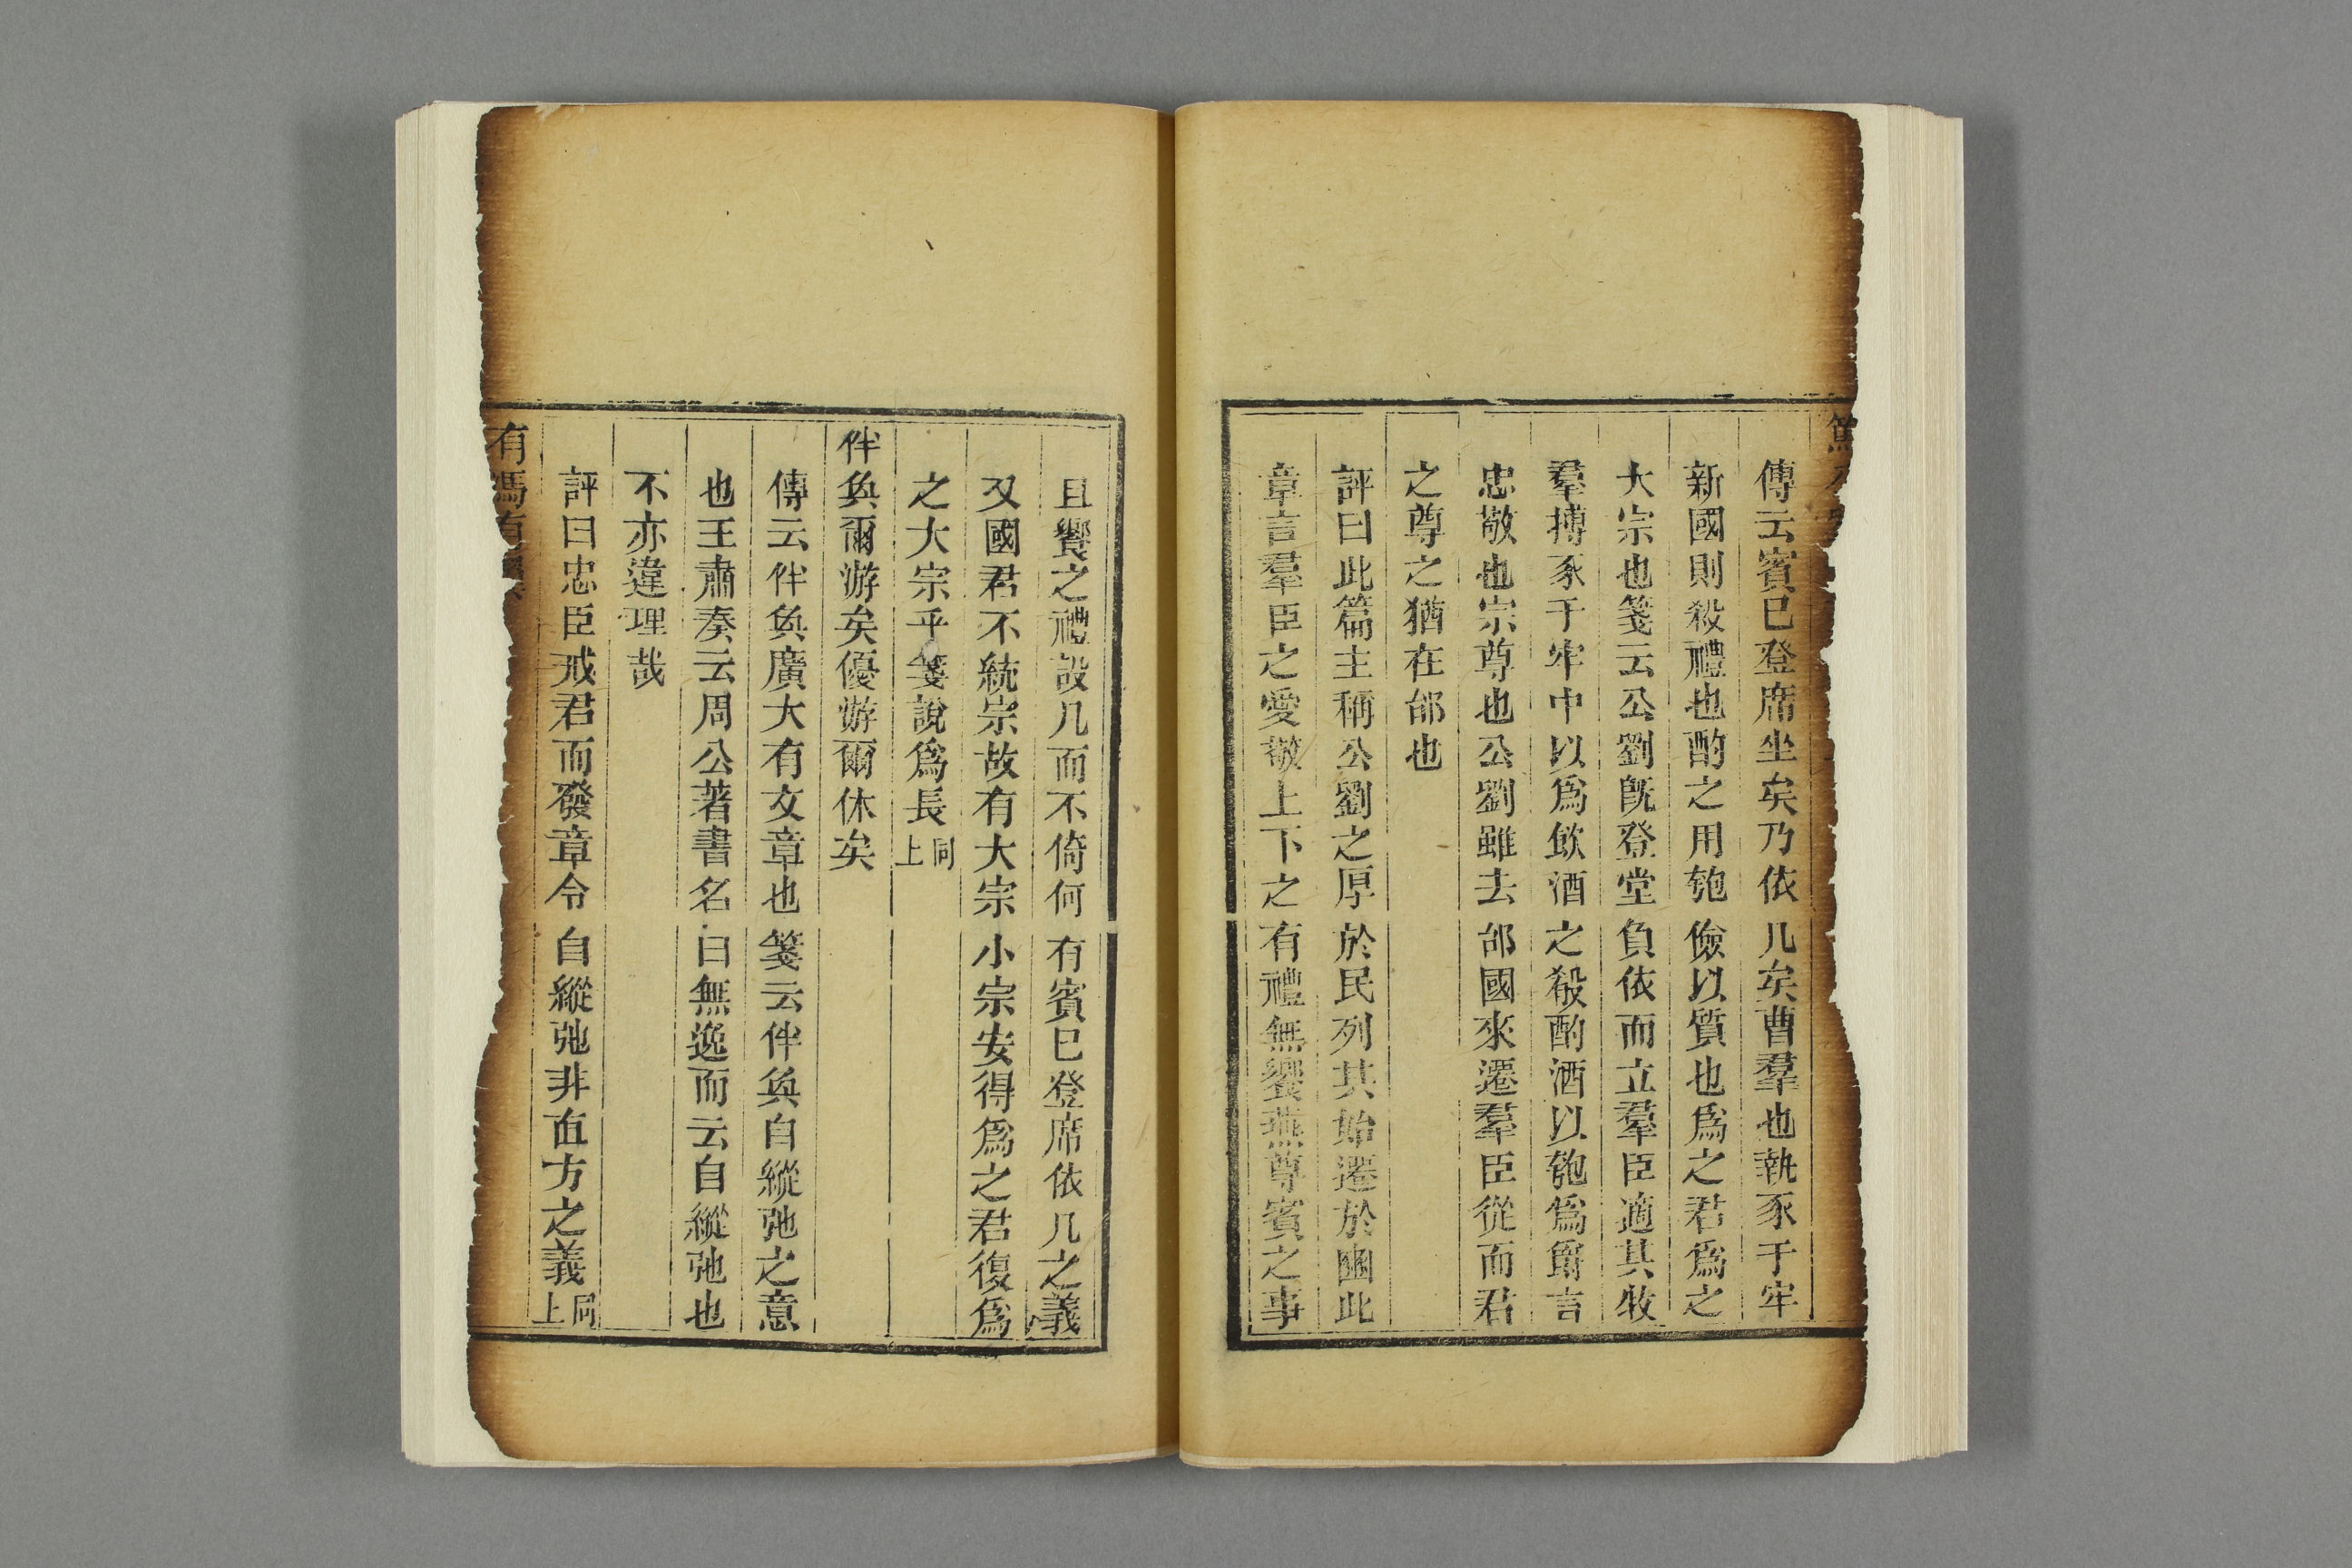 篤
傳云賓已登席坐矣乃依几矣曹羣也執豕于牢
新國則殺禮也酌之用匏儉以質也爲之君爲之
大宗也箋云公劉旣登堂負依而立羣臣適其牧
羣搏豕于牢中以爲飲酒之殽酌酒以匏爲爵言
忠敬也宗尊也公劉雖去邰國來遷羣臣從而君
之尊之猶在邰也
評曰此篇主稱公劉之厚於民列其始遷於豳此
章言羣臣之愛敬上下之有禮無饗燕尊賓之事
且饗之禮設几而不倚何有賓已登席依几之義
又國君不統宗故有大宗小宗安得爲之君復爲
之大宗乎箋說爲長同上
伴奐爾游矣優游爾休矣
傳云伴奐廣大有文章也箋云伴奐自縱弛之意
也王肅奏云周公著書名曰無逸而云自縱弛也
不亦違理哉
評曰忠臣戒君而發章令自縱弛非直方之義同上
有馮有